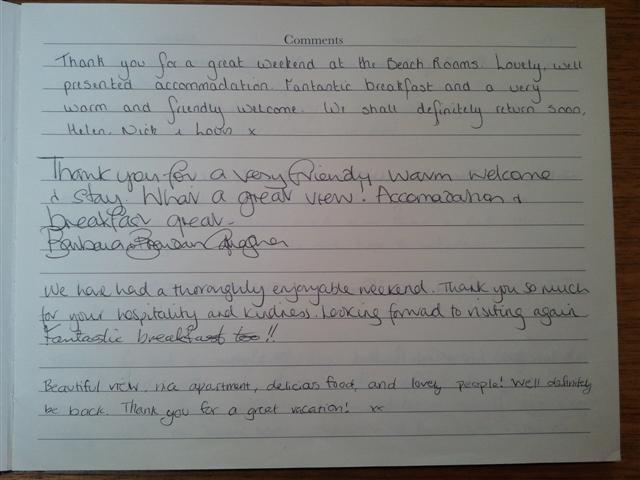 Comments
Thank you for a great weekend at the Beach Rooms. Lovely, well
presented accommodation. Fantastic breakfast and a very
warm and friendly welcome. We shall definitely return soon.
Helen, Nick &
x
Thank you for a very friendly warm welcome
& stay. What a great view! Accomodation &
breakfast great.
Barbara & Brendan
We have had a thoroughly enjoyable weekend. Thank you so much
for your hospitality and kindness. Looking forward to visiting again
Fantastic breakfast too!!
Beautiful view, nice apartment, delicias food, and lovely people! Well definitely
be back. Thank you for a great vacation! xx